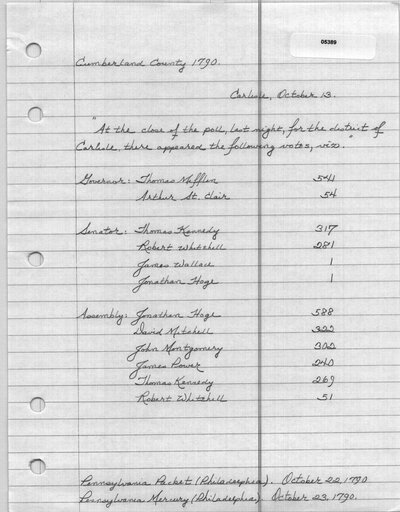 05389
Cumberland County 1790.
Carlisle, October 13.
"At the close of the poll, last night, for the district of
Carlisle, there appeared the following votes, viz."
Governor: Thomas Mifflin 541
Arthur St. Clair 54
Senator: Thomas Kennedy 317
Robert Whitehill 281
James Wallace 1
Jonathan Hoge 1
Assembly: Jonathan Hoge 588
David Mitchell
John Montgomery
James Power 240
Thomas Kennedy 269
Robert Whitehill 51
Pennsylvania Packet (Philadelphia). October 22, 1790
Pennsylvania Mercury (Philadelphia). October 23, 1790.